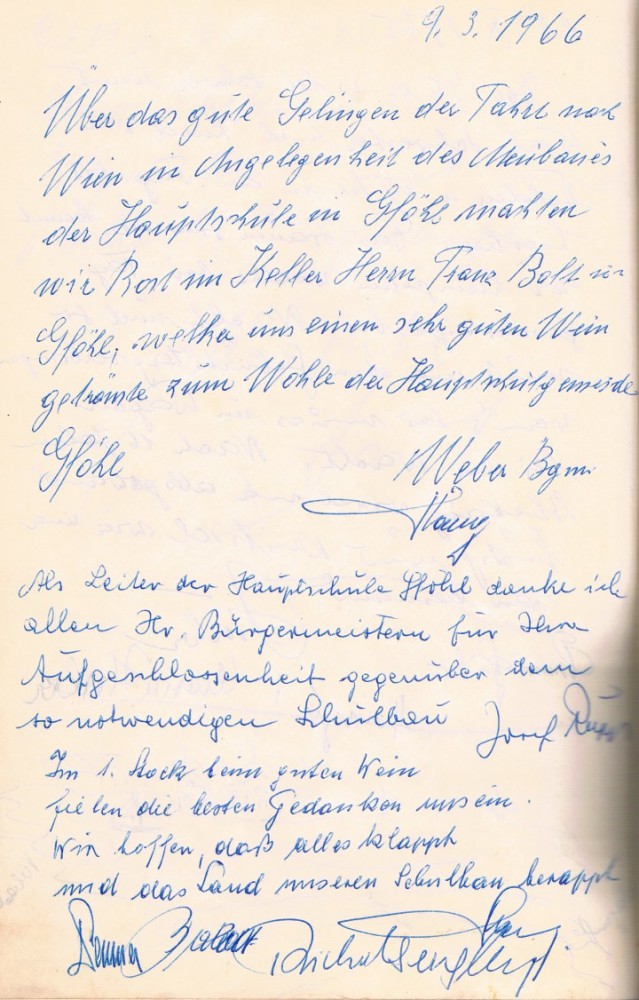 9. 3. 1966
Über das gute Gelingen der Fahrt nach
Wien in Angelegenheit des Neubaues
der Hauptschule in Gföhl machten
wir Rast im Keller Herrn Franz Bolt in
Gföhl, welcher uns einen sehr guten Wein
kredenzte zum Wohle der Hauptschulgemeinde
Gföhl
Weber Bgm
Als Leiter der Hauptschule Gföhl danke ich
allen Hr. Bürgermeistern für Ihre
Aufgeschlossenheit gegenüber dem
so notwendigen Schulbau Josef
Im 1. Stock beim guten Wein
fielen die besten Gedanken uns ein.
Wir hoffen, daß alles klappt
und das Land unseren Schulbau berappt